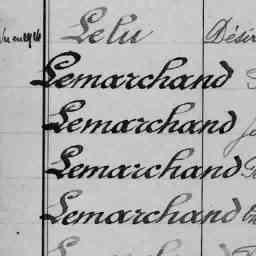 Lelu Désir
Lemarchand
Lemarchand
Lemarchand
Lemarchand